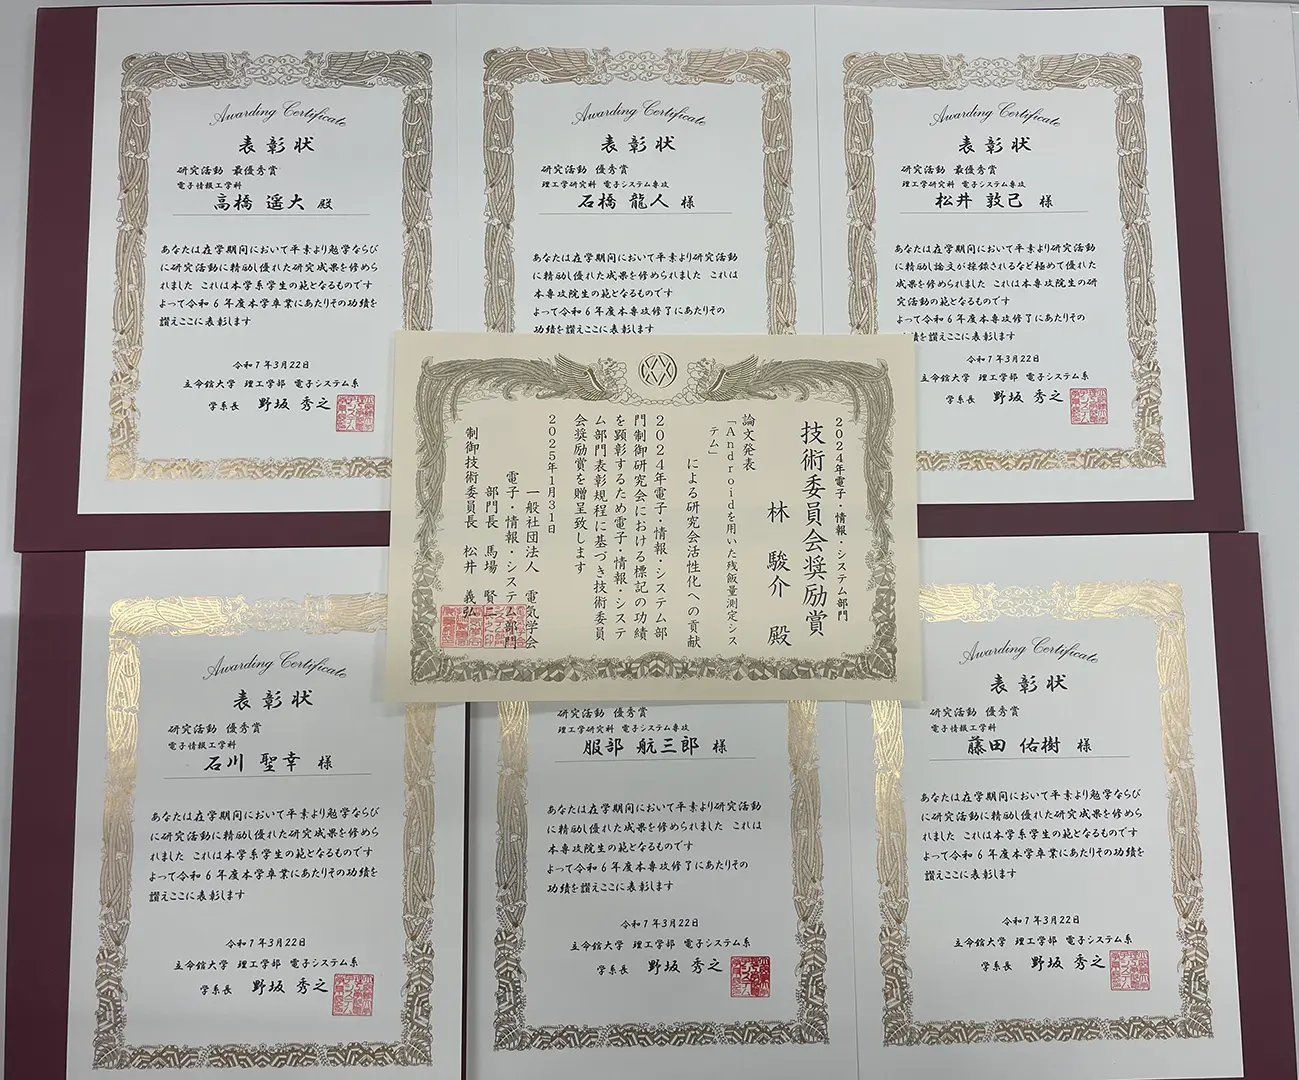 Awarding Certificate
表彰状
研究活動 最優秀賞
電子情報工学科
高橋 遥大 殿
あなたは在学期間において平素より勉学ならび
に研究活動に精励し優れた研究成果を修めら
れました これは本学系学生の範となるものです
よって令和6年度本学卒業にあたりその功績を
讃えここに表彰します
令和7年3月22日
立命館大学 理工学部 電子システム系
学系長 野坂 秀之
Awarding Certificate
表彰状
研究活動 優秀賞
理工学研究科 電子システム専攻
石橋 龍人 様
あなたは在学期間において平素より研究活動
に精励し優れた成果を修められました これは
本専攻院生の範となるものです
よって令和6年度本専攻修了にあたりその
功績を讃えここに表彰します
Awarding Certificate
表彰状
研究活動 最優秀賞
理工学研究科 電子システム専攻
松井 敦己 様
あなたは在学期間において平素より研究活動
に精励し論文が採録されるなど極めて優れた
成果を修められました これは本専攻院生の研
究活動の範となるものです
よって令和6年度本専攻修了にあたりその
績を讃えここに表彰します
令和7年3月22日
立命館大学 理工学部 電子システム系
学系長 野坂 秀之
2024年電子・情報・システム部門
技術委員会奨励賞
林 駿介 殿
論文発表
「Androidを用いた残飯量測定シス
テム」
による研究会活性化への貢献
2024年電子・情報・システム部
門制御研究会における標記の功績
を顕彰するため電子・情報・システ
ム部門表彰規程に基づき技術委員
会奨励賞を贈呈致します
2025年1月31日
一般社団法人 電気学会
電子・情報・システム部門
部門長 馬場 賢二
制御技術委員長 松井 義弘
Awarding Certificate
表彰状
研究活動 優秀賞
電子情報工学科
石川 聖幸 様
あなたは在学期間において平素より勉学ならび
に研究活動に精励し優れた研究成果を修めら
れました これは本学系学生の範となるものです
よって令和6年度本学卒業にあたりその功績を
讃えここに表彰します
令和7年3月22日
立命館大学 理工学部 電子システム系
学系長 野坂 秀之
研究活動 優秀賞
理工学研究科 電子システム専攻
服部 航三郎 様
あなたは在学期間において平素より研究活動
に精励し優れた成果を修められました これは
本専攻院生の範となるものです
よって令和6年度本専攻修了にあたりその
功績を讃えここに表彰します
令和7年3月22日
立命館大学 理工学部 電子システム系
学系長 野坂 秀之
Awarding Certificate
表彰状
研究活動 優秀賞
電子情報工学科
藤田 佑樹 様
あなたは在学期間において平素より勉学ならび
に研究活動に精励し優れた研究成果を修めら
れました これは本学系学生の範となるものです
よって令和6年度本学卒業にあたりその功績を
讃えここに表彰します
令和7年3月22日
立命館大学 理工学部 電子システム系
学系長 野坂 秀之